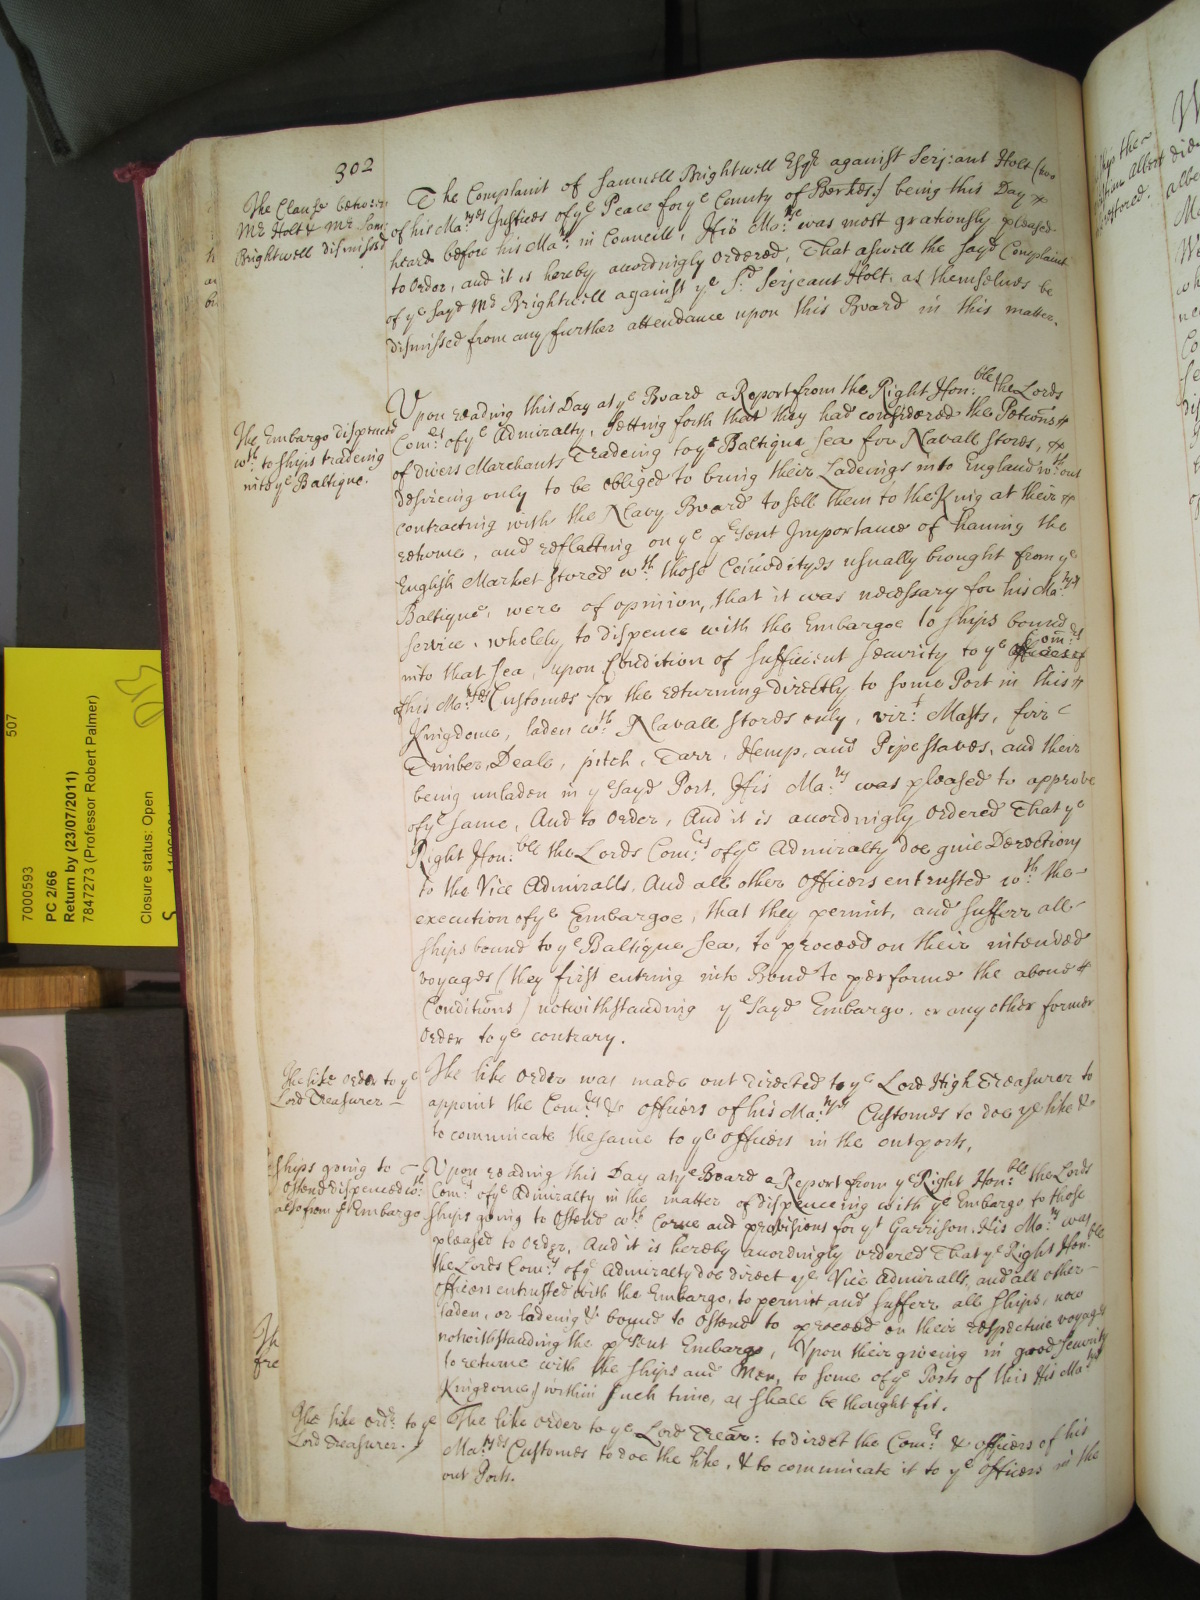 302
The Clause betwixt
Mr. Holt & Mr. Sam:
Brightwell dismissed
The Complaint of Samuell Brightwell Esqr. against Serjeant Holt (two
of his Ma:tyes Justices of ye Peace for ye County of Berkes) being this Day
heard before his Ma:ty in Councill, His Ma:tie was most gratiously pleased
to Order, and it is hereby accordingly Ordered, That aswell the sayd Complaint
of ye sayd Mr. Brightwell against ye Sd. Serjeant Holt, as themselves be
dismissed from any further attendance upon this Board in this matter.
The Embargo dispenced
wth. to ships tradeing
into ye Baltique.
Upon reading this Day at ye Board a Report from the Right Hon:ble the Lords
Com:rs of ye Admiralty, Setting forth that they had considered the Peticons
of divers Marchants Tradeing to ye Baltique Sea for Navall Stores,
desireing only to be obliged to bring their Ladeings into England wth.out
contracting with the Navy Board to sell them to the King at their
returne, and reflecting on ye present Importance of haveing the
English Market stored wth. those Comodityes usually brought from ye
Baltique, were of opinion, that it was necessary for his Ma:tyes
service, wholely to dispence with the Embargoe to ships bound
into that Sea, upon Condition of sufficient security to ye Com:rs
of his Ma:tyes Customes for the returning directly to some Port in this
Kingdome, laden wth. Navall Stores only, vizt: Masts, firr
Timber, Deale, pitch, Tarr, Hemp, and Pipestaves, and their
being unladen in ye sayd Port. His Ma:ty was pleased to approve
of ye same, And to Order, And it is accordingly Ordered That ye
Right Hon:ble the Lords Com:rs of ye Admiralty doe give Derections
to the Vice Admiralls, And all other Officers entrusted wth. the
execution of ye Embargoe, that they permit, and suffer all
ships bound to ye Baltique Sea, to proceed on their intended
voyages (they first entring into Bond to performe the above
Conditions) notwithstanding ye sayd Embargo, or any other former
Order to ye contrary.
The like order to ye
Lord Treasurer
The like Order was made out directed to ye Lord High Treasurer to
appoint the Com:rs & officers of his Ma:tyes Customes to doe ye like &
to communicate the same to ye officers in the outports,
Ships going to
Ostend dispenced wth.
also from ye Embargo
Upon reading this Day at ye Board a Report from ye Right Hon:ble the Lords
Com:rs of ye Admiralty in the matter of dispenceing with ye Embargo to those
ships going to Ostend wth. Corne and provisions for yt Garrison. His Ma:ty was
pleased to Order, And it is hereby accordingly ordered That ye Right Hon:ble
the Lords Com:rs of ye Admiralty doe direct ye Vice Admiralls, and all other
Officers entrusted with the Embargo, to permitt and sufferr all ships, now
laden, or ladeing & bound to Ostend to proceed on their respective voyages
notwithstanding the present Embargo, Upon their giveing in good Security
to returne with the ships and Men, to some of ye Ports of this His Ma:tyes
Kingdome) within such time, as shall be thought fit.
The like ordr. to ye
Lord Treasurer.
The like order to ye Lord Trear: to direct the Com:rs & officers of his
Ma:tyes Customes to doe the like, & to communicate it to ye officers in the
out Ports.
Th
fre
7000593
507
PC 2/66
Return by (23/07/2011)
7847273 (Professor Robert Palmer)
Closure status: Open